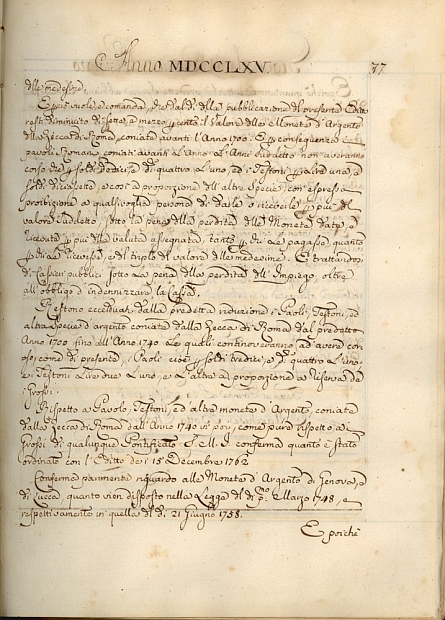 Anno MDCCLXV. 77
delle medesime
E perciò vuole, e comanda, che dal dì della pubblicazione del presente Editto
resti diminuito di sette, e mezzo p cento il valore delle Monete d'Argento
della Zecca di Roma, coniate avanti l'Anno 1700. E p conseguenza i
pavoli Romani coniati avanti l'Anno suddetto non averanno
corso che p soldi dodici e di quattro l'uno, ed i Testoni p Lire una, e
soldi diciassette, e così a proporzione dell'altre Specie, con espressa
proibizione a qualsivoglia persona di darle o riceverle p più del
valore suddetto sotto la pena della perdita delle Monete date, e
ricevute p più della valuta assegnata, tanto p chi le pagasse quanto
p chi le ricevesse, e del triplo del valore delle medesime. E trattandosi
di Cassieri pubblici sotto la pena della perdita dell'Impiego, oltre
all'obbligo d'indennizzare la Cassa.
Restono eccettuati dalla predetta riduzione i Paoli, Testoni, ed
altra specie d'argento coniate dalla Zecca di Roma dal predetto
Anno 1700 fino all'Anno 1740 Le quali continoveranno ad avere cor=
so, come di presente, i Paoli cioè p soldi tredici, e d. quattro L'uno
e Testoni Lire due L'uno, e L'altre a proporzione a riserva de
i Grossi.
Rispetto a Pavoli, Testoni, ed altre monete d'Argento, coniate
dalla Zecca di Roma dall'Anno 1740 in poi, come pure rispetto a
Grossi di qualunque Pontificato S. M. I. conferma quanto è stato
ordinato con l'Editto de i 15 Decembre 1762
Conferma parimente riguardo alle Monete d'Argento di Genova, e
di Lucca, quanto vien disposto nella Legge del dì p.mo Marzo 1748, e
respettivamente in quella del dì 21 Giugno 1758.
E poiché